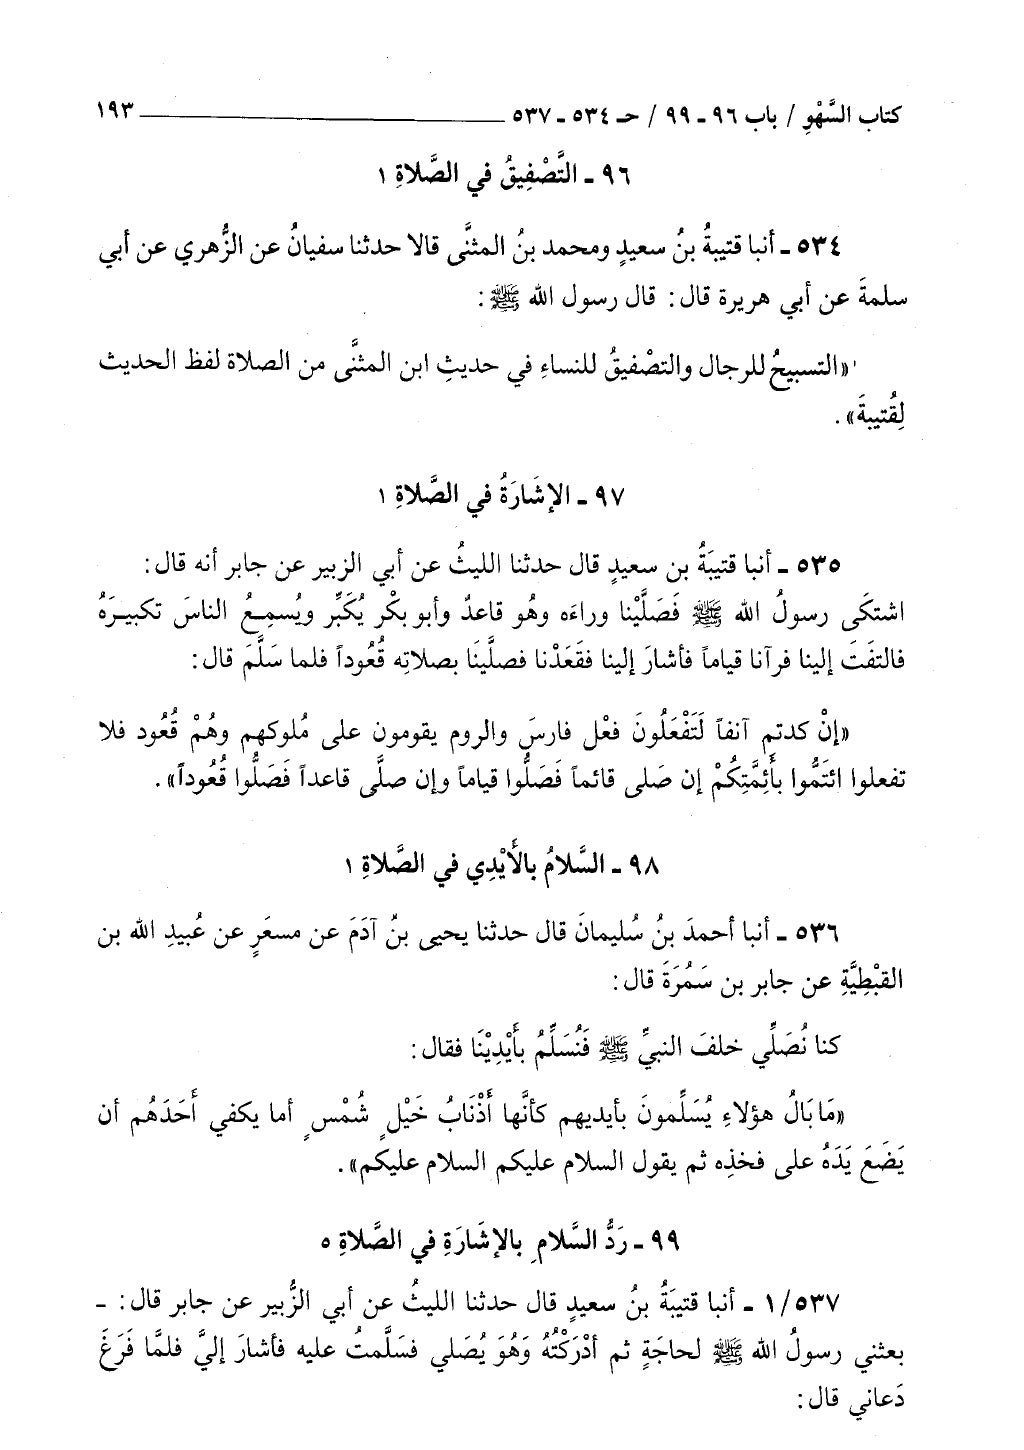 كتاب السَّهْوِ / باب ٩٦ ـ ٩٩ / حـ ٥٣٤ ـ ٥٣٧ ١٩٣
٩٦ ـ التَّصْفِيقُ في الصَّلاةِ ١
٥٣٤ ـ أنبا قتيبةُ بنُ سعيدٍ ومحمد بنُ المثنَّى قالا حدثنا سفيانُ عن الزُّهري عن أبي
سلمةَ عن أبي هريرة قال: قال رسول الله ﷺ:
«التسبيحُ للرجال والتصْفيقُ للنساءِ في حديثِ ابن المثنَّى من الصلاة لفظ الحديث
لِقُتيبةَ».
٩٧ ـ الإشَارَةُ في الصَّلاةِ ١
٥٣٥ ـ أنبا قتيبَةُ بن سعيدٍ قال حدثنا الليثُ عن أبي الزبير عن جابر أنه قال:
اشتكَى رسولُ الله ﷺ فَصَلَّيْنا وراءَه وهُو قاعدٌ وأبو بكْر يُكَبِّر ويُسمِعُ الناسَ تكبيرَهُ
فالتفَتَ إلينا فرآنا قياماً فأشارَ إلينا فقَعَدْنا فصلَّينَا بصلاتِه قُعُوداً فلما سَلَّمَ قال:
«إنْ كدتم آنفاً لَتَفْعَلُونَ فعْل فارسَ والروم يقومون على مُلوكهم وهُمْ قُعُود فلا
تفعلوا ائتَمُّوا بأَئِمَّتِكُمْ إن صَلى قائماً فَصَلُّوا قياماً وإن صلَّى قاعداً فَصَلُّوا قُعُوداً».
٩٨ ـ السَّلامُ بالأَيْدِي في الصَّلاةِ ١
٥٣٦ ـ أنبا أحمدَ بنُ سُليمانَ قال حدثنا يحيى بنُ آدَمَ عن مسعَرٍ عن عُبيدِ الله بن
القبْطِيَّةِ عن جابر بن سَمُرَةَ قال:
كنا نُصَلِّي خلفَ النبيِّ ﷺ فَنُسَلِّمُ بأَيْدِيْنَا فقال:
«مَا بَالُ هؤلاءِ يُسَلِّمونَ بأيديهم كأنَّها أذْنَابُ خَيْلٍ شُمْسٍ أما يكفي أَحَدَهُم أن
يَضَعَ يَدَهُ على فخذِه ثم يقول السلام عليكم السلام عليكم».
٩٩ ـ رَدُّ السَّلامِ بالإشَارَةِ في الصَّلاةِ ٥
١/٥٣٧ ـ أنبا قتيبَةُ بنُ سعيدٍ قال حدثنا الليثُ عن أبي الزُّبير عن جابر قال: ـ
بعثني رسولُ الله ﷺ لحاجَةٍ ثم أدْرَكْتُهُ وَهُوَ يُصَلي فسَلَّمتُ عليه فأشارَ إليَّ فلمَّا فَرَغَ
دَعاني قال: